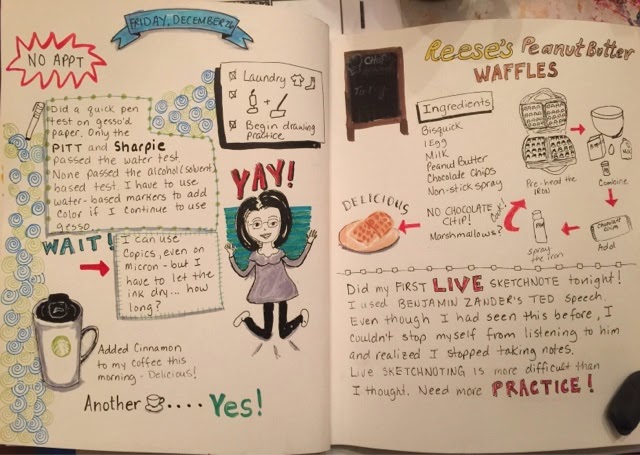 FRIDAY, DECEMBER 26
NO APPT
Laundry
+
Begin drawing
practice
Did a quick pen
test on gesso'd
paper. Only the
PITT and Sharpie
passed the water test.
None passed the alcohol (solvent)
based test. I have to use
water-based markers to add
color if I continue to use
gesso.
YAY!
WAIT!
I can use
Copics, even on
Micron - but I
have to let the
ink dry... how
long?
Added Cinnamon
to my coffee this
morning - Delicious!
Another .... Yes!
Reese's Peanut Butter
WAFFLES
Ingredients
Bisquick
1 Egg
Milk
Peanut Butter
Chocolate Chips
Non-stick spray
Pre-head the
IRON
Combine
Add
Spray
the iron
Cook!
NO CHOCOLATE
CHIP!
Marshmallows?
DELICIOUS
Did my FIRST LIVE SKETCHNOTE tonight!
I used BENJAMIN ZANDER'S TED speech.
Even though I had seen this before, I
couldn't stop myself from listening to him
and realized I stopped taking notes.
Live SKETCHNOTING is more difficult than
I thought. Need more PRACTICE!